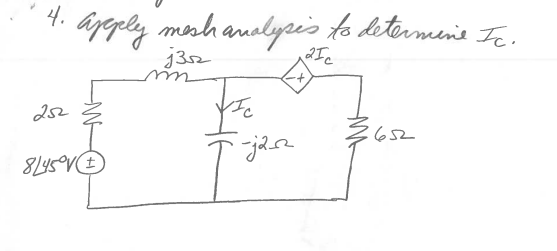 4. Apply mesh analysis to determine Ic.
j3Ω
2Ic
- +
2Ω
Ic
-j2Ω
6Ω
8∠45°V
±